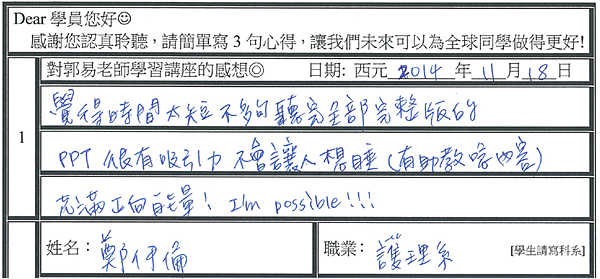 Dear 學員您好☺
感謝您認真聆聽，請簡單寫 3 句心得，讓我們未來可以為全球同學做得更好!
對郭易老師學習講座的感想◎ 日期: 西元 2014 年 11 月 18 日
1
覺得時間太短 不夠聽完全部完整版的
PPT 很有吸引力 不會讓人想睡 (有助教唸內容)
充滿正向能量! I'm possible!!!
姓名： 鄭伊倫 職業： 護理系 [學生請寫科系]